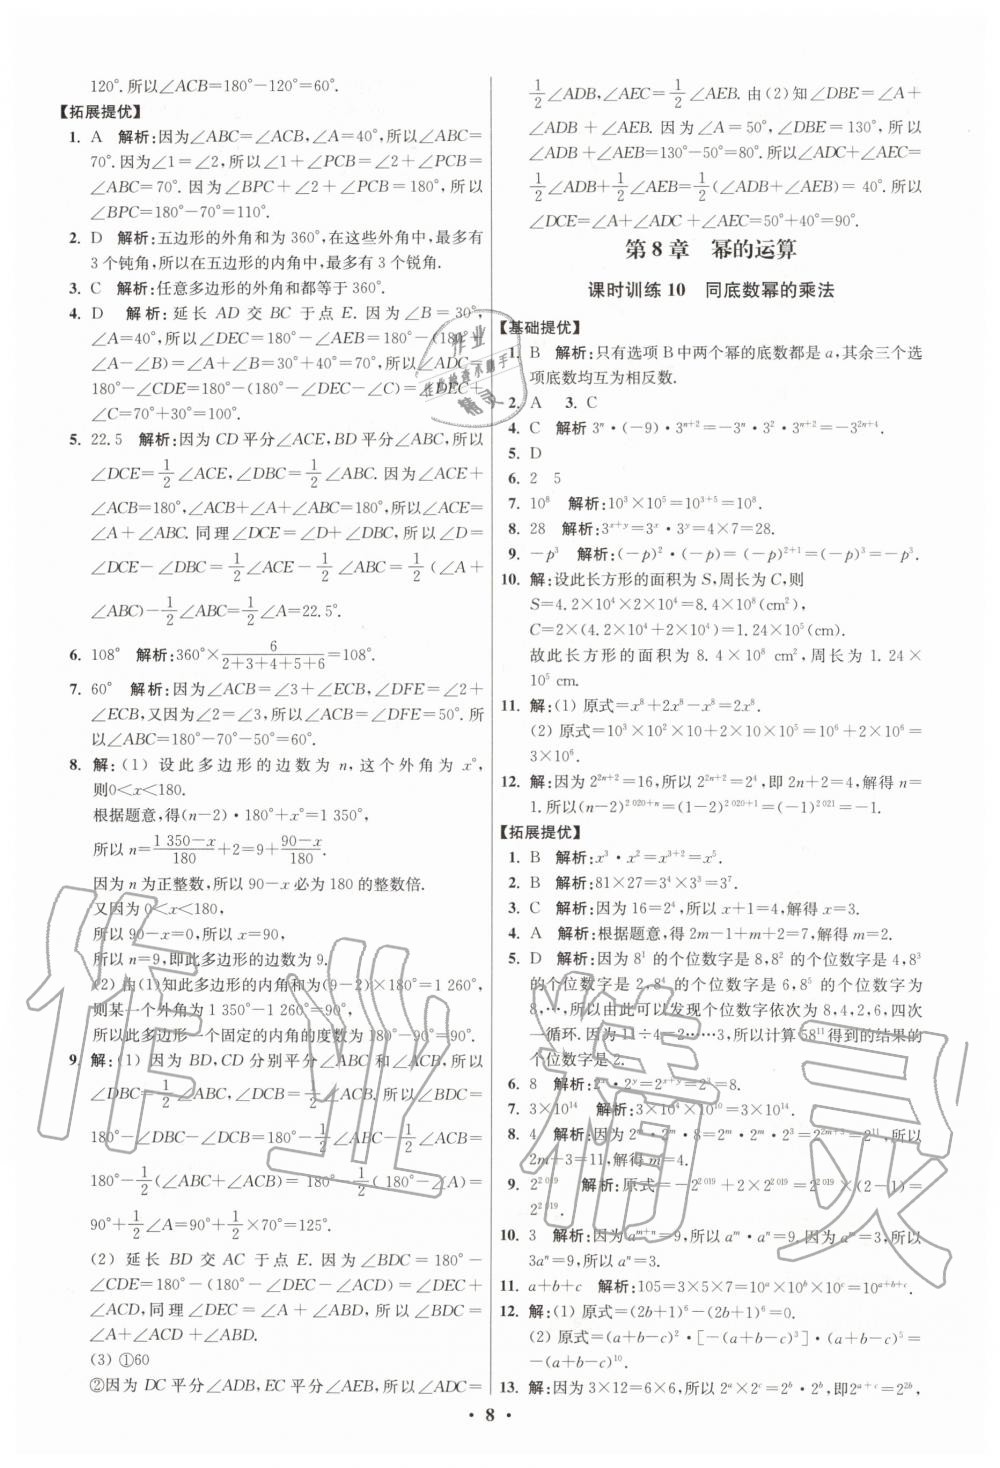 120°.所以∠ACB=180°-120°=60°.
【拓展提优】
1. A 解析:因为∠ABC=∠ACB,∠A=40°,所以∠ABC=
70°.因为∠1=∠2,所以∠1+∠PCB=∠2+∠PCB=
∠ABC=70°.因为∠BPC+∠2+∠PCB=180°,所以
∠BPC=180°-70°=110°.
2. D 解析:五边形的外角和为360°,在这些外角中,最多有
3个钝角,所以在五边形的内角中,最多有3个锐角.
3. C 解析:任意多边形的外角和都等于360°.
4. D 解析:延长AD交BC于点E.因为∠B=30°,
∠A=40°,所以∠DEC=180°-∠AEB=180°-(180°-
∠A-∠B)=30°+40°=70°,所以∠ADC=
180°-∠CDE=180°-(180°-∠DEC-∠C)=∠DEC+
∠C=70°+30°=100°.
5. 22.5 解析:因为CD平分∠ACE,BD平分∠ABC,所以
∠DCE=1/2∠ACE,∠DBC=1/2∠ABC.因为∠ACE+
∠ACB=180°,∠ACB+∠A+∠ABC=180°,所以∠ACE=
∠A+∠ABC.同理∠DCE=∠D+∠DBC,所以∠D=
∠DCE-∠DBC=1/2∠ACE-1/2∠ABC=1/2(∠A+
∠ABC)-1/2∠ABC=1/2∠A=22.5°.
6. 108° 解析:360°×6/(2+3+4+5+6)=108°.
7. 60° 解析:因为∠ACB=∠3+∠ECB,∠DFE=∠2+
∠ECB,又因为∠2=∠3,所以∠ACB=∠DFE=50°.所
以∠ABC=180°-70°-50°=60°.
8. 解:(1)设此多边形的边数为n,这个外角为x°,
则0<x<180.
根据题意,得(n-2)·180°+x°=1 350°,
所以n=(1 350-x)/180+2=9+(90-x)/180.
因为n为正整数,所以90-x必为180的整数倍.
又因为0<x<180,
所以90-x=0,所以x=90,
所以n=9,即此多边形的边数为9.
(2)由(1)知此多边形的内角和为(9-2)×180°=1 260°,
则某一个外角为1 350°-1 260°=90°,
所以此多边形一个固定的内角的度数为180°-90°=90°.
9. 解:(1)因为BD,CD分别平分∠ABC和∠ACB,所以
∠DBC=1/2∠ABC,∠DCB=1/2∠ACB,所以∠BDC=
180°-∠DBC-∠DCB=180°-1/2∠ABC-1/2∠ACB=
180°-1/2(∠ABC+∠ACB)=180°-1/2(180°-∠A)=
90°+1/2∠A=90°+1/2×70°=125°.
(2)延长BD交AC于点E.因为∠BDC=180°-
∠CDE=180°-(180°-∠DEC-∠ACD)=∠DEC+
∠ACD,同理∠DEC=∠A+∠ABD,所以∠BDC=
∠A+∠ACD+∠ABD.
(3)①60
②因为DC平分∠ADB,EC平分∠AEB,所以∠ADC=
1/2∠ADB,∠AEC=1/2∠AEB.由(2)知∠DBE=∠A+
∠ADB+∠AEB.因为∠A=50°,∠DBE=130°,所以
∠ADB+∠AEB=130°-50°=80°.所以∠ADC+∠AEC=
1/2∠ADB+1/2∠AEB=1/2(∠ADB+∠AEB)=40°.所以
∠DCE=∠A+∠ADC+∠AEC=50°+40°=90°.
第8章 幂的运算
课时训练10 同底数幂的乘法
【基础提优】
1. B 解析:只有选项B中两个幂的底数都是a,其余三个选
项底数均互为相反数.
2. A 3. C
4. C 解析 3ⁿ·(-9)·3ⁿ⁺²=-3ⁿ·3²·3ⁿ⁺²=-3²ⁿ⁺⁴.
5. D
6. 2 5
7. 10⁸ 解析:10³×10⁵=10³⁺⁵=10⁸.
8. 28 解析:3^(x+y)=3^x·3^y=4×7=28.
9. -p³ 解析:(-p)²·(-p)=(-p)²⁺¹=(-p)³=-p³.
10. 解:设此长方形的面积为S,周长为C,则
S=4.2×10⁴×2×10⁴=8.4×10⁸(cm²),
C=2×(4.2×10⁴+2×10⁴)=1.24×10⁵(cm).
故此长方形的面积为8.4×10⁸ cm²,周长为1.24×
10⁵ cm.
11. 解:(1)原式=x⁸+2x⁸-x⁸=2x⁸.
(2)原式=10³×10²×10+2×10×10⁵=10⁶+2×10⁶=
3×10⁶.
12. 解:因为2²ⁿ⁺²=16,所以2²ⁿ⁺²=2⁴,即2n+2=4,解得n=
1.所以(n-2)^(2 020+n)=(1-2)^(2 020+1)=(-1)^(2 021)=-1.
【拓展提优】
1. B 解析:x³·x²=x³⁺²=x⁵.
2. B 解析:81×27=3⁴×3³=3⁷.
3. C 解析:因为16=2⁴,所以x+1=4,解得x=3.
4. A 解析:根据题意,得2m-1+m+2=7,解得m=2.
5. D 解析:因为8¹的个位数字是8,8²的个位数字是4,8³
的个位数字是2,8⁴的个位数字是6,8⁵的个位数字是
8,…,所以由此可以发现个位数字依次为8,4,2,6,四次
一循环.因为11÷4=2……3,所以计算58¹¹得到的结果的
个位数字是2.
6. 8 解析:2^x·2^y=2^(x+y)=2³=8.
7. 3×10¹⁴ 解析:3×10⁴×10¹⁰=3×10¹⁴.
8. 4 解析:因为2^m·2^m·8=2^m·2^m·2³=2^(2m+3)=2¹¹,所以
2m+3=11,解得m=4.
9. 2^(2 019) 解析:原式=-2^(2 019)+2×2^(2 019)=2^(2 019)×(2-1)=
2^(2 019).
10. 3 解析:因为a^(m+n)=9,所以a^m·a^n=9.因为a^m=3,所以
3a^n=9,所以a^n=3.
11. a+b+c 解析:105=3×5×7=10^a×10^b×10^c=10^(a+b+c).
12. 解:(1)原式=(2b+1)⁶-(2b+1)⁶=0.
(2)原式=(a+b-c)²·[-(a+b-c)³]·(a+b-c)⁵=
-(a+b-c)¹⁰.
13. 解:因为3×12=6×6,所以2^a×2^c=2^b·2^b,即2^(a+c)=2^(2b),
·8·
作业
作业检查小助手
精灵
作业精灵